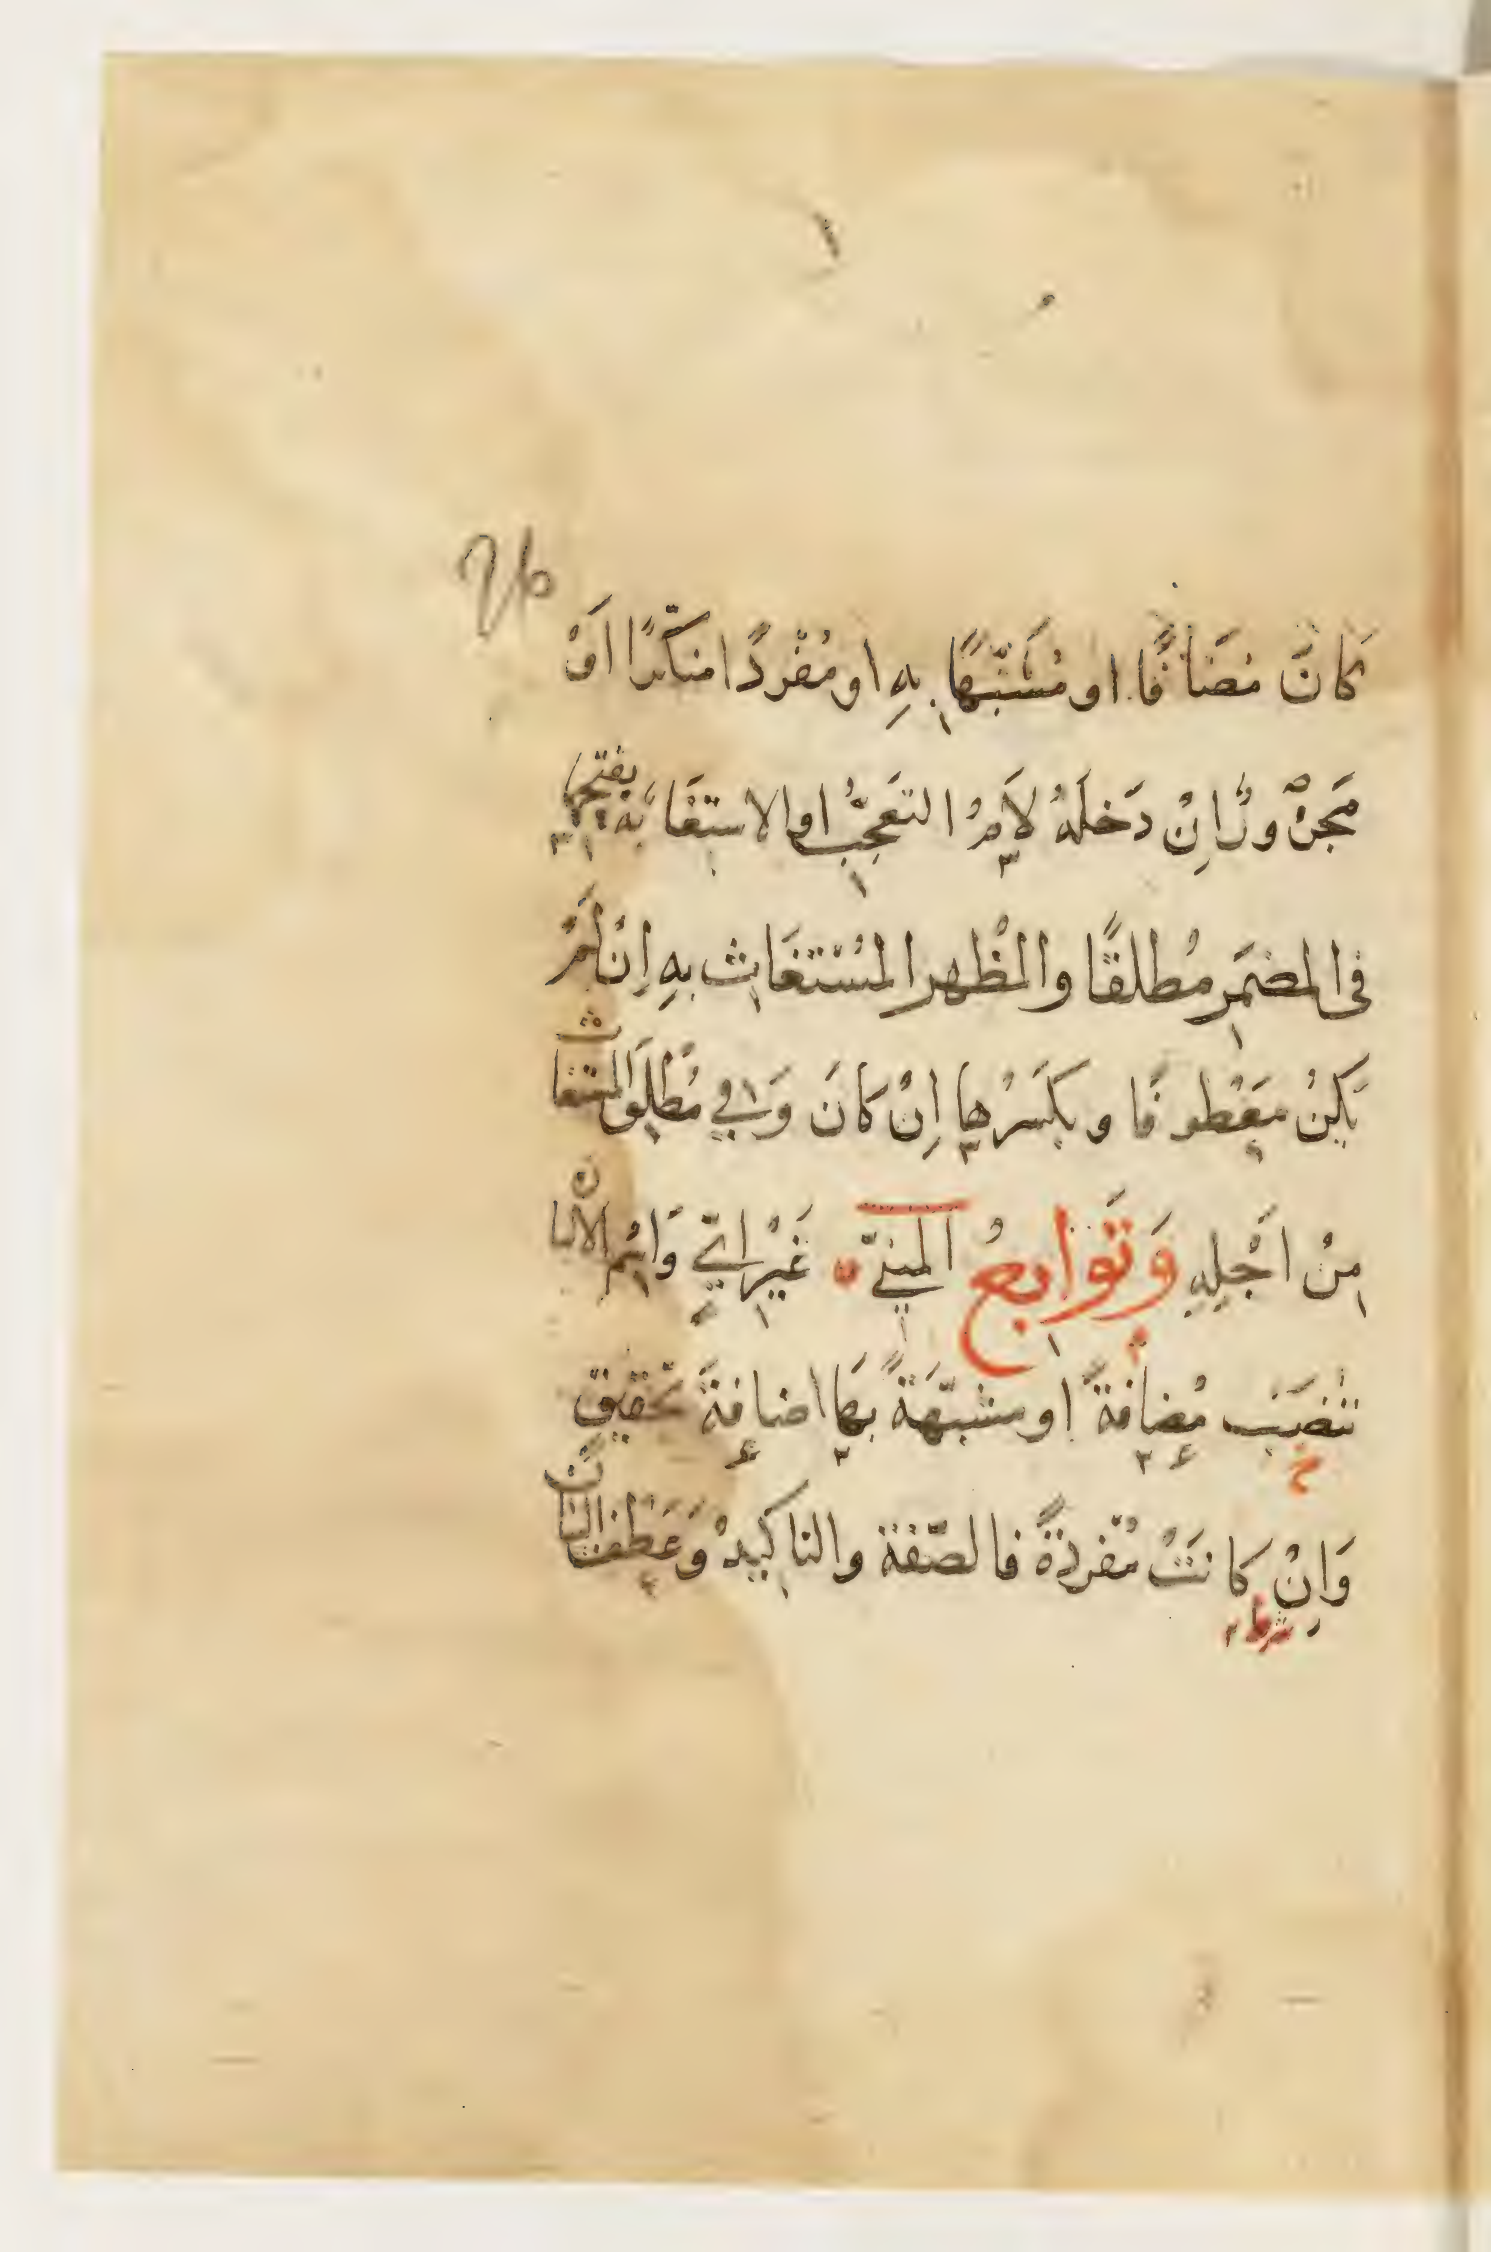 كَانَ مُضَافًا او مُشَبَّهًا بِهِ او مُفْرَدًا منكّرًا اَوْ
مَجْرُورًا اِنْ دَخَلَهُ لَامُ التعَجُّبِ او الاستغَاثَةِ بفتحها
فى المضمَرِ مُطلقًا والمظْهر المُسْتَغَاثِ بهِ اِنْ لَمْ
يَكُنْ مَعْطوفًا وبكَسْرِها اِنْ كَانَ وَفي مُطْلَقِ المستغاث
مِنْ اَجْلِهِ وَتَوابِعُ المبنيّ غَيْرِ اَيّ وَاسْمِ الاشا
تنْصَبُ مُضافةً او مشبّهَةً بهَا اضافةً تحقيق
وَاِنْ كانَتْ مُفردَةً فالصّفة والتاكيدُ وَعَطْفُ البيان
شرط